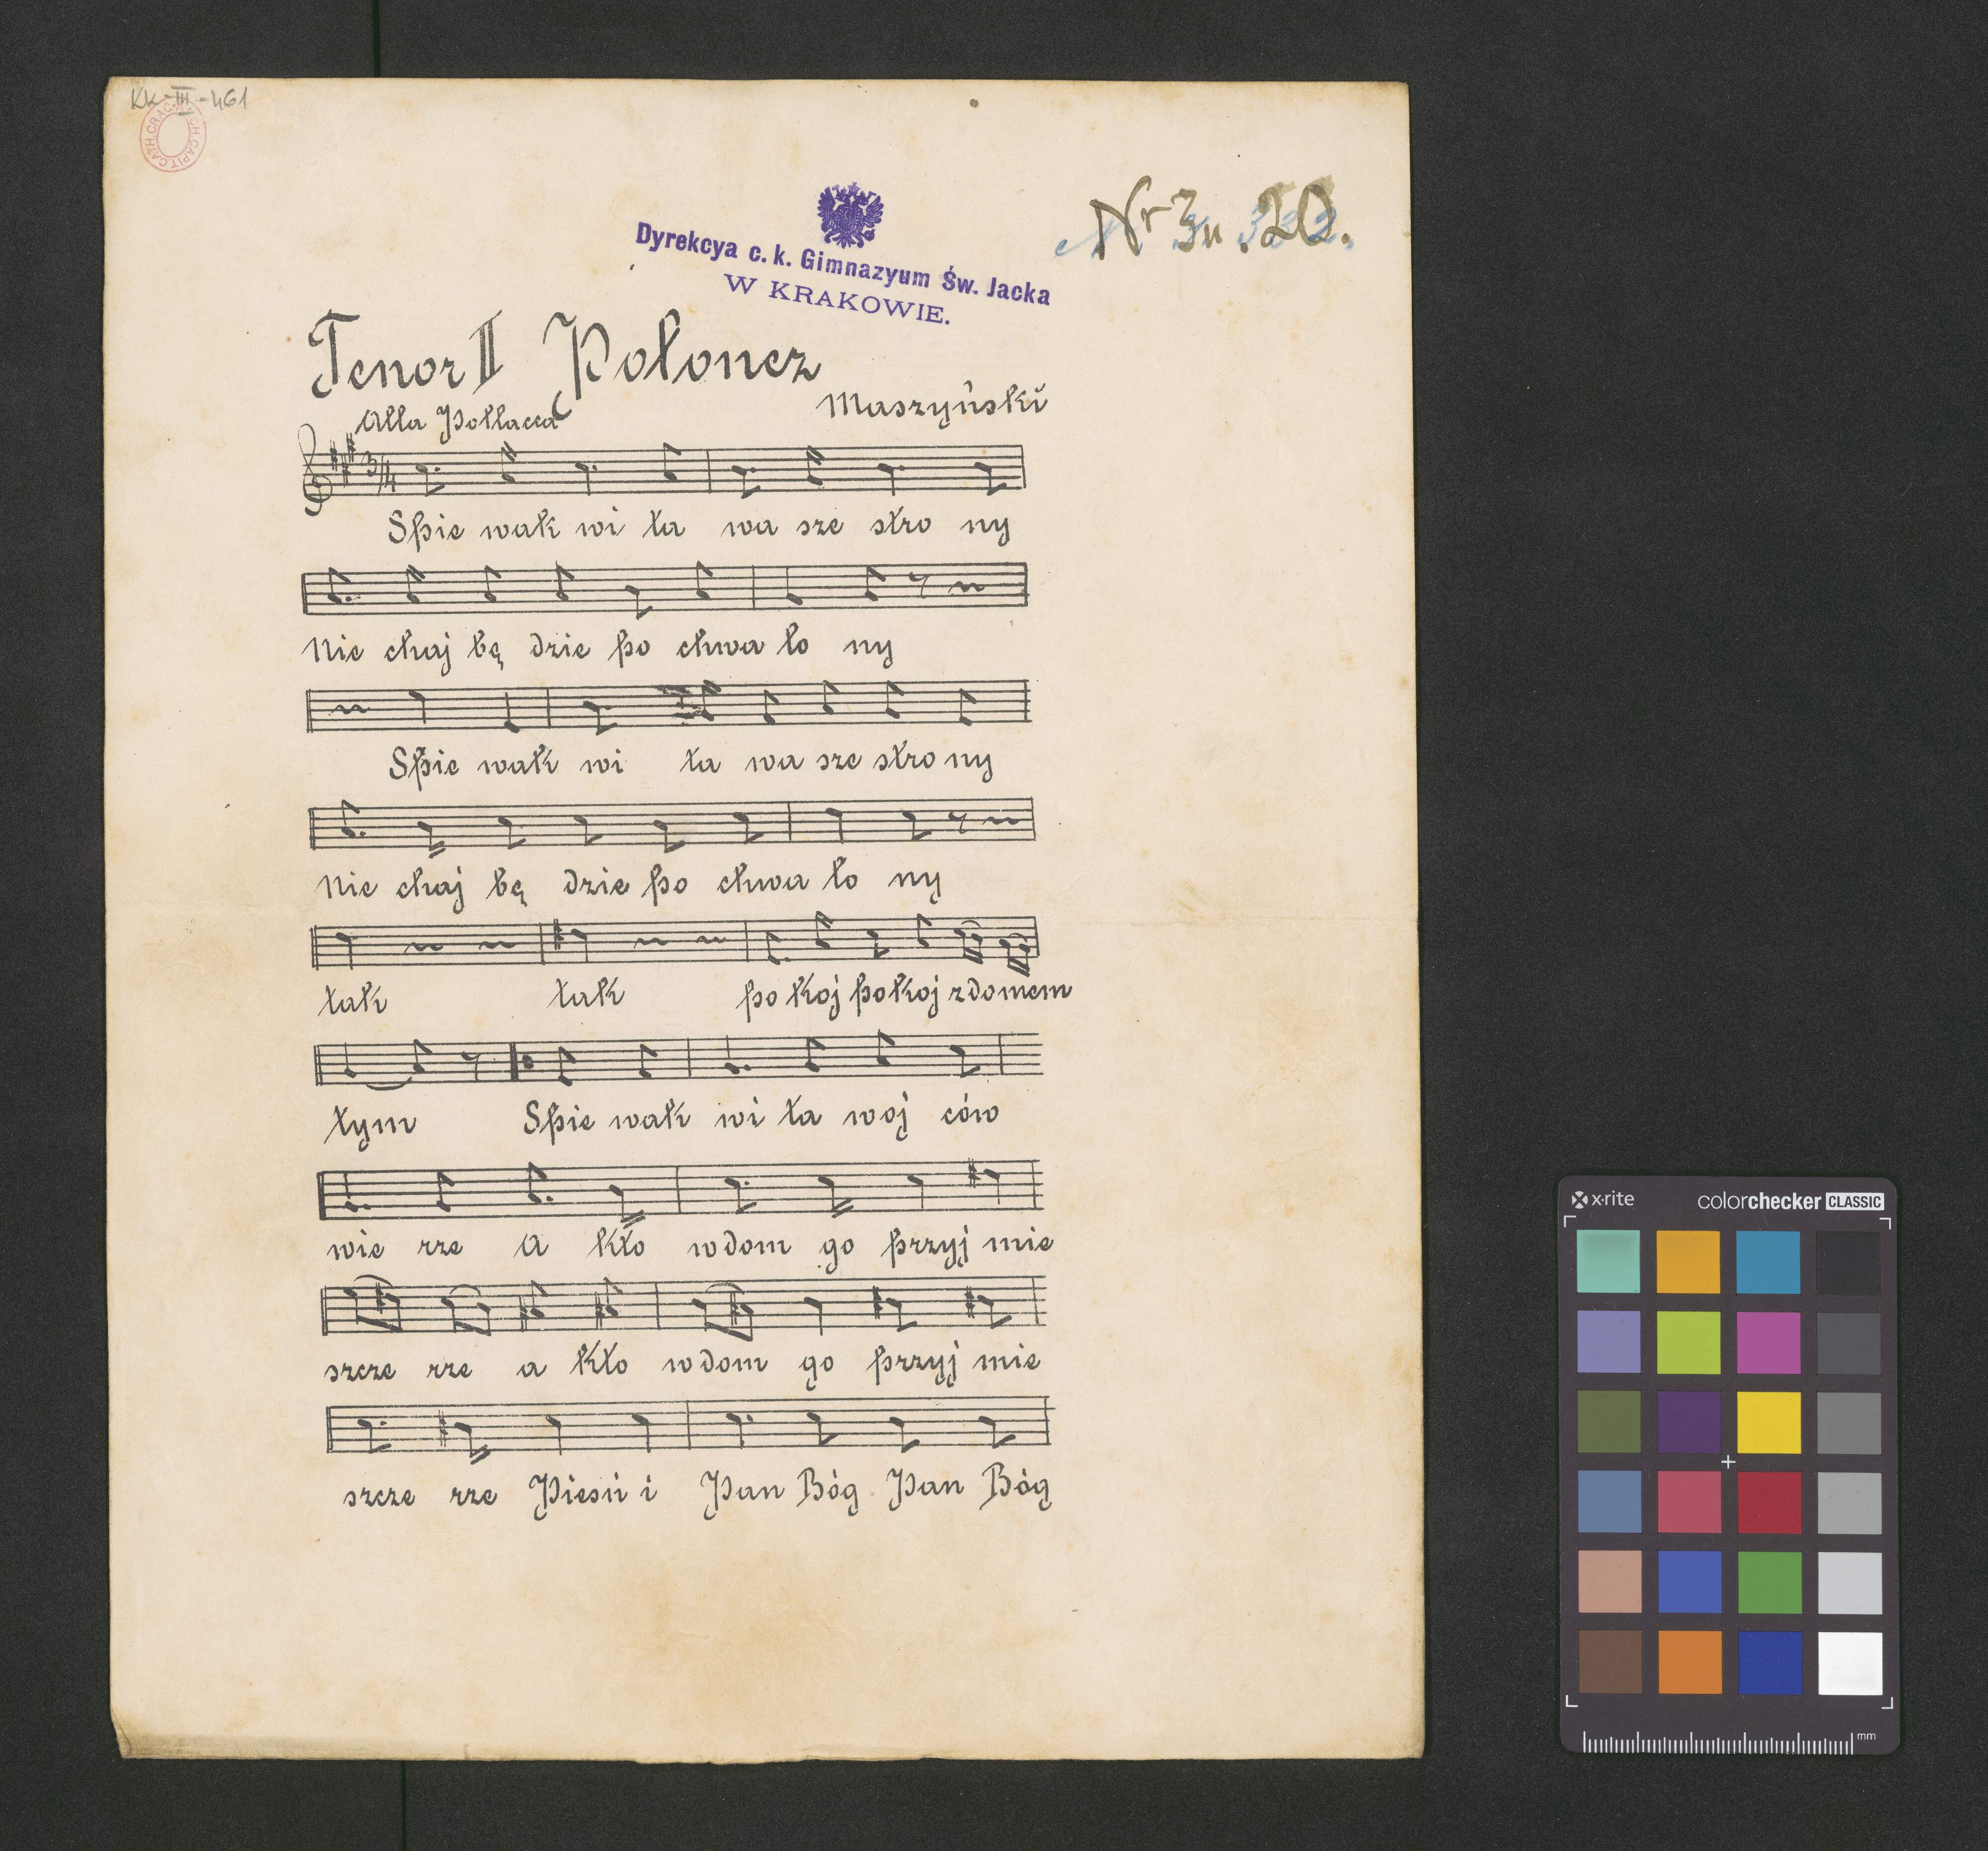 KK-III-461
ARCH. CAPIT. CATH. CRAC.
Nr 3u. 20.
Dyrekcya c. k. Gimnazyum Św. Jacka
W KRAKOWIE.
Tenor II Polonez
Alla Pollacca
Maszyński
3/4
Spie wak wi ta wa sze stro ny
Nie chaj bę dzie po chwa lo ny
Spie wak wi ta wa sze stro ny
Nie chaj bę dzie po chwa lo ny
tak tak po koj po koj z domem
tym Spie wak wi ta woj ców
wie rze A kto w dom go przyj mie
szcze rze a kto w dom go przyj mie
szcze rze Pieśń i Pan Bóg Pan Bóg
x·rite colorchecker CLASSIC
mm